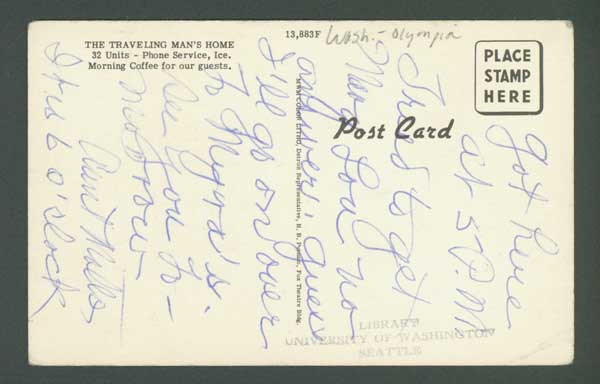 THE TRAVELING MAN'S HOME
32 Units - Phone Service, Ice.
Morning Coffee for our guests.
13,883F
Wash. - Olympia
PLACE
STAMP
HERE
Post Card
Detroit Representative, H. B. Fox Theatre Bldg.
Got here
at 5 P.M.
Tried to get
Lou no
answer, guess
I'll go on over
to
See you to-
morrow -
Aunt
It is 6 o'clock
LIBRARY
UNIVERSITY OF WASHINGTON
SEATTLE